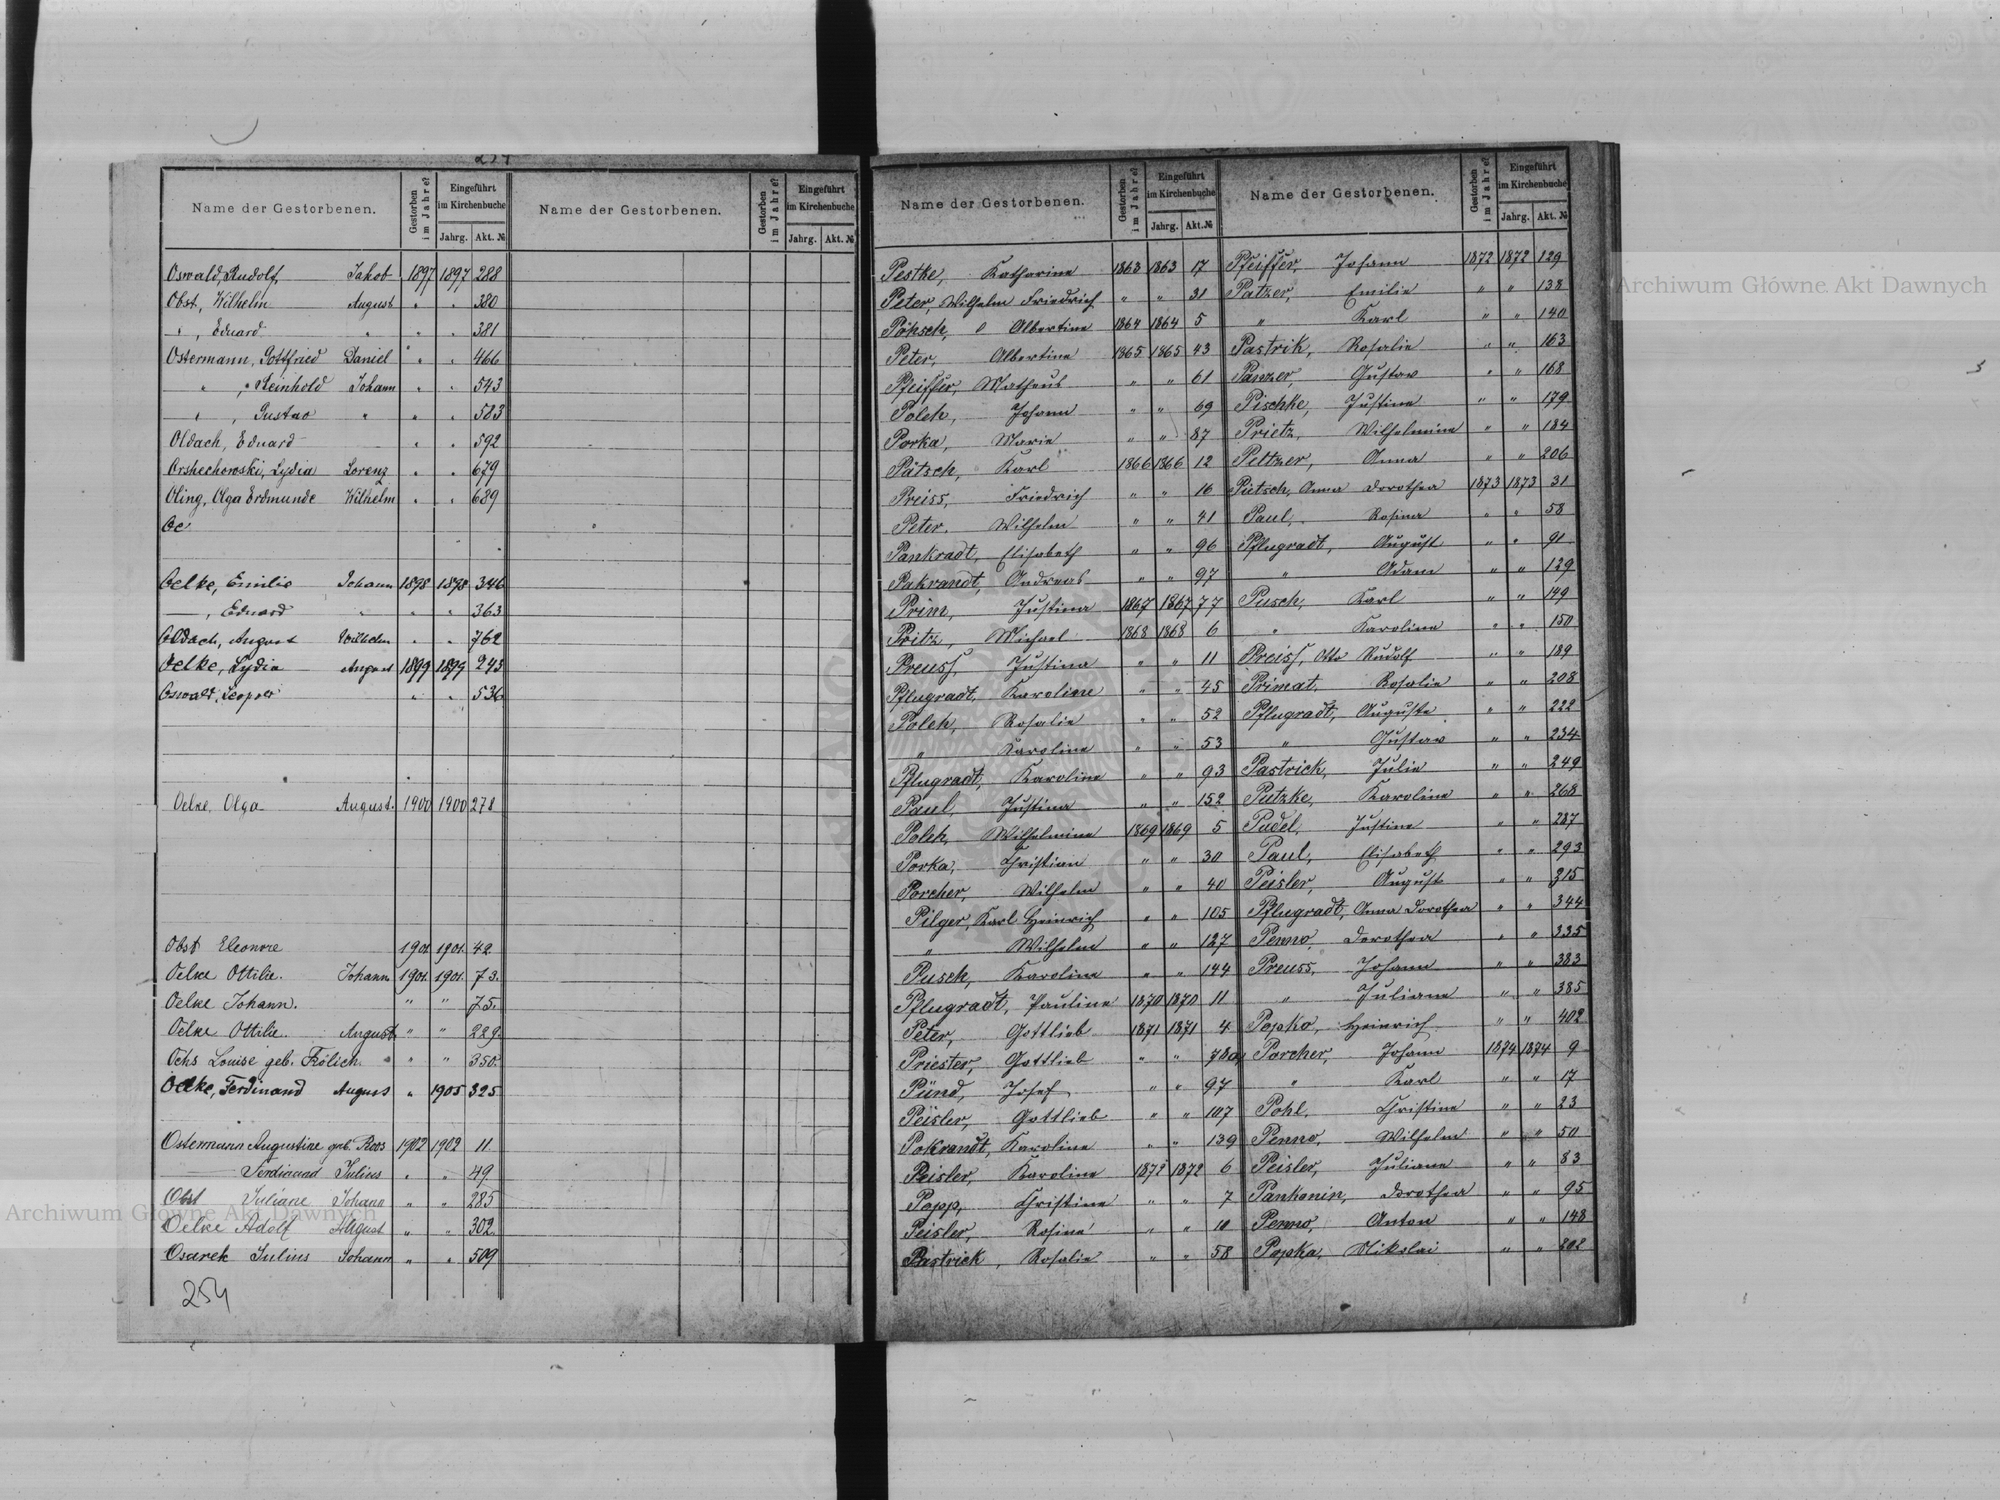 254
Name der Gestorbenen. Gestorben im Jahre? Eingeführt im Kirchenbuche Jahrg. Akt. №
Name der Gestorbenen. Gestorben im Jahre? Eingeführt im Kirchenbuche Jahrg. Akt. №
Oswald, Rudolf, Jakob 1897 1897 288
Obst, Wilhelm August " " 380
" , Eduard " " " 381
Ostermann, Gottfried Daniel " " 466
" , Reinhold Johann " " 543
" , Gustav " " " 583
Oldach, Eduard " " 592
Orshechowski, Lydia Lorenz " " 679
Oling, Olga Erdmunde Wilhelm " " 689
Oe
Oelke, Emilie Johann 1898 1898 346
— , Eduard " " " 363
Oldach, August Wilhelm " " 762
Oelke, Lydia August 1899 1899 243
Oswalt, Leopold " " 536
Oelke, Olga August. 1900 1900 278
Obst Eleonore 1901. 1901. 42
Oelke Ottilie. Johann 1901. 1901. 73.
Oelke Johann. " " 75.
Oelke Ottilie. August " " 229.
Ochs Louise geb. Frölich. " " 350.
Oelke, Ferdinand August " 1905 325
Ostermann Augustine geb. Roos 1902 1902 11
— Ferdinand Julius " " 49
Obst Juliane Johann " " 285
Oelke Adolf August " " 302
Osarek Julius Johann " " 509
254
Name der Gestorbenen. Gestorben im Jahre? Eingeführt im Kirchenbuche Jahrg. Akt. №
Pestke, Katharine 1863 1863 17
Peter, Wilhelm Friedrich " " 31
Albertine 1864 1864 5
Peter, Albertine 1865 1865 43
Pfeiffer, Matheus " " 61
Poleh, Johann " " 69
Porka, Marie " " 87
Pätsch, Karl 1866 1866 12
Preiss, Friedrich " " 16
Peter, Wilhelm " " 41
Pankradt, Elisabeth " " 96
Pakrandt, Andreas " " 97
Prim, Justina 1867 1867 77
Pritz, Michael 1868 1868 6
Preuss, Justina " " 11
Pflugradt, Karoline " " 45
Poleh, Rosalie " " 52
" Karoline " " 53
Pflugradt, Karoline " " 93
Paul, Justina " " 152
Poleh, Wilhelmine 1869 1869 5
Porka, Christian " " 30
Porcher, Wilhelm " " 40
Pilger, Karl Heinrich " " 105
" Wilhelm " " 127
Pusch, Karoline " " 144
Pflugradt, Pauline 1870 1870 11
Peter, Gottlieb 1871 1871 4
Priester, Gottlieb " " 78a
Pünd, Josef " " 97
Peisler, Gottlieb " " 107
Pokrandt, Karoline " " 139
Peisler, Karoline 1872 1872 6
Popp, Christine " " 7
Peisler, Rosine " " 10
Pastrick, Rosalie " " 58
Name der Gestorbenen. Gestorben im Jahre? Eingeführt im Kirchenbuche Jahrg. Akt. №
Pfeiffer, Johann 1872 1872 129
Patzer, Emilie " " 138
" Karl " " 140
Pastrik, Rosalie " " 163
Panzer, Gustav " " 168
Pischke, Justine " " 179
Prietz, Wilhelmine " " 184
Peltzer, Anna " " 206
Pütsch, Anna Dorothea 1873 1873 31
Paul, Rosina " " 58
Pflugradt, August " " 91
" Adam " " 129
Pusch, Karl " " 149
" Karoline " " 150
Preiss, Otto Rudolf " " 189
Primat, Rosalie " " 208
Pflugradt, Auguste " " 222
" Gustav " " 234
Pastrick, Julie " " 249
Putzke, Karoline " " 268
Pudel, Justine " " 287
Paul, Elisabeth " " 293
Peisler, August " " 315
Pflugradt, Anna Dorothea " " 344
Penno, Dorothea " " 335
Preuss, Johann " " 383
" Juliane " " 385
Popko, Heinrich " " 402
Porcher, Johann 1874 1874 9
" Karl " " 17
Pohl, Christine " " 23
Penno, Wilhelm " " 50
Peisler, Juliane " " 83
Pankonin, Dorothea " " 95
Penno Anton " " 148
Popka, Nikolai " " 202
Archiwum Główne Akt Dawnych
Archiwum Główne Akt Dawnych